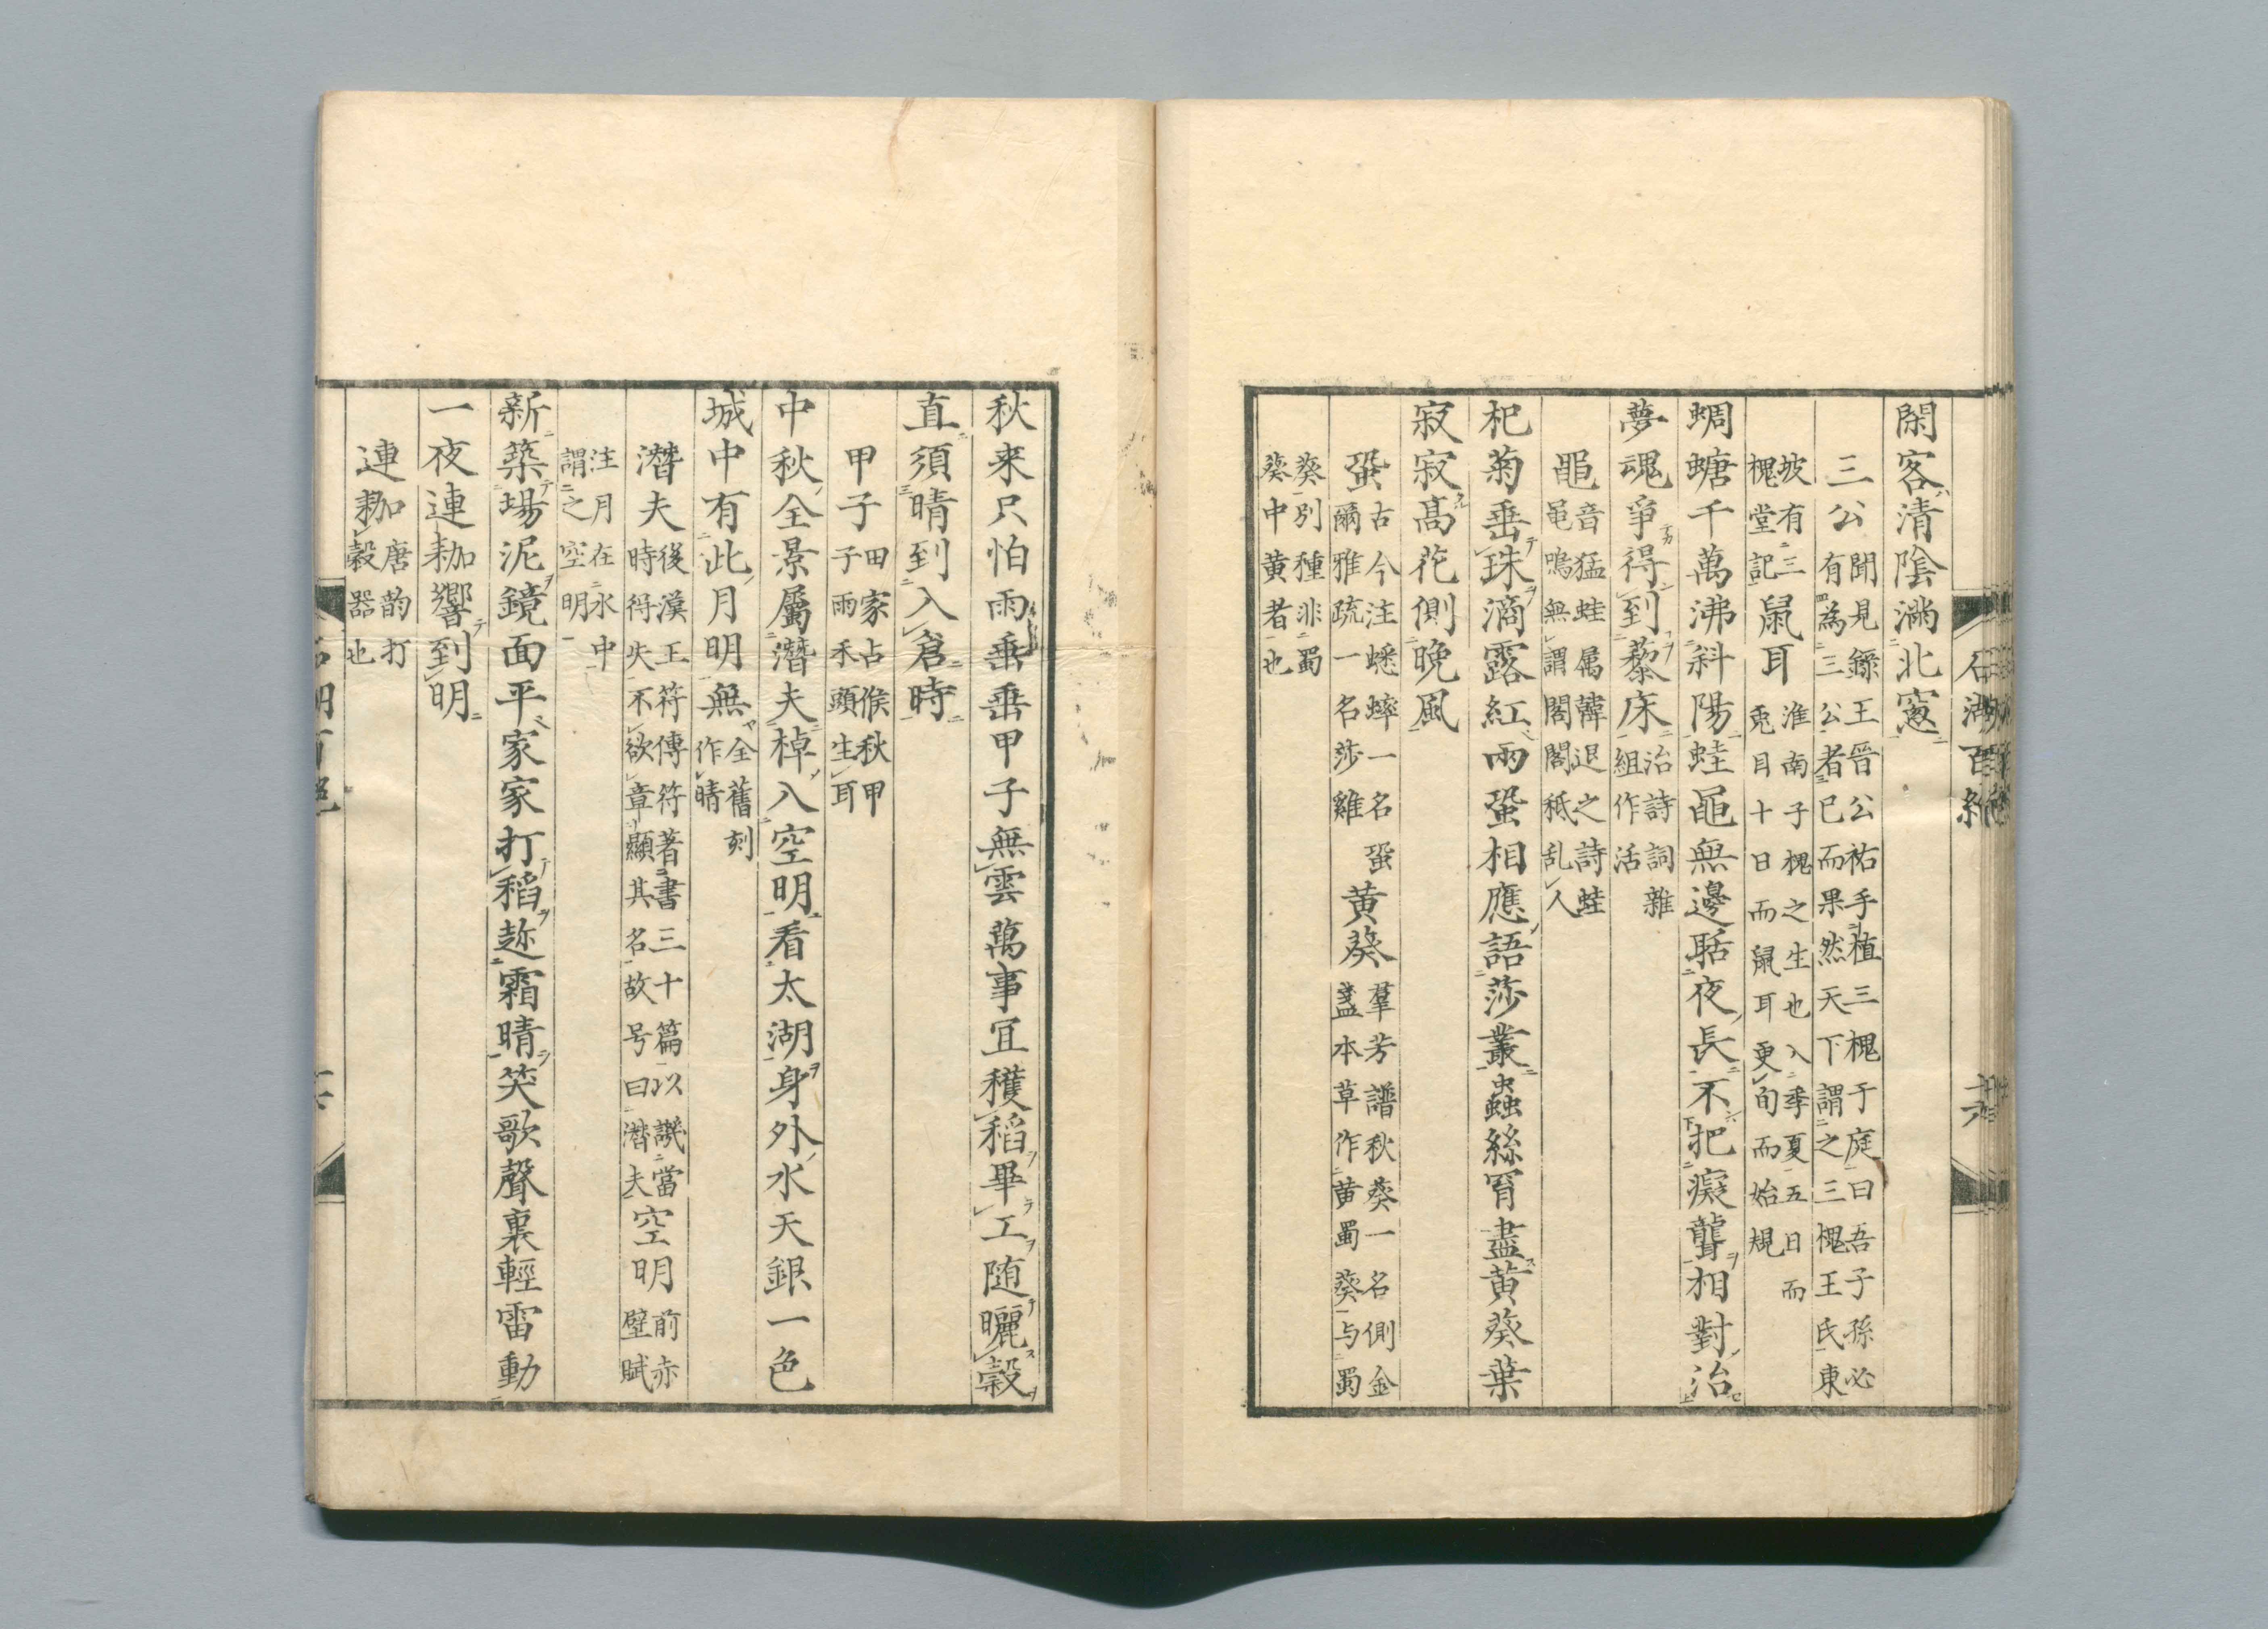 閑客清陰滿北窻
三公聞見錄王晉公祐手植三槐于庭曰吾子孫必
有為三公者已而果然天下謂之三槐王氏東
坡有三
槐堂記鼠耳淮南子槐之生也入季夏五日而
兎目十日而鼠耳更旬而始規
蜩螗千萬沸斜陽蛙黽無邊聒夜長不把癡聾相對治
夢魂爭得到藜床治詩詞雜
組作活
黽音猛蛙属韓退之詩蛙
黽鳴無謂閤閤秪乱人
杞菊垂珠滴露紅兩蛩相應語莎叢蟲絲罥盡黄葵葉
寂寂高花側晚風
蛩古今注蟋蟀一名蛩
爾雅疏一名莎雞黄葵羣芳譜秋葵一名側金
盞本草作黄蜀葵与蜀
葵別種非蜀
葵中黄者也
石湖百絶
十六
秋来只怕雨垂垂甲子無雲萬事宜穫稻畢工随曬穀
直須晴到入倉時
甲子田家占候秋甲
子雨禾頭生耳
中秋全景屬潛夫棹入空明看太湖身外水天銀一色
城中有此月明無全舊刻
作晴
潛夫後漢王符傳符著書三十篇以譏當
時得失不欲章顯其名故号曰潛夫空明前赤
壁賦
注月在水中
謂之空明
新築場泥鏡面平家家打稻趂霜晴笑歌聲裏輕雷動
一夜連耞響到明
連耞唐韵打
穀器也